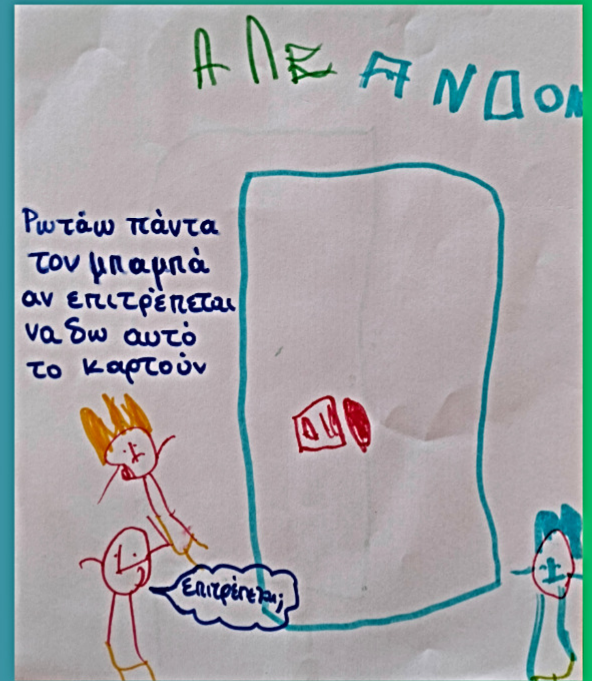 ΑΛΕΞΑΝΔΟΝ
Ρωτάω πάντα
τον μπαμπά
αν επιτρέπεται
να δω αυτό
το καρτούν
Επιτρέπεται;